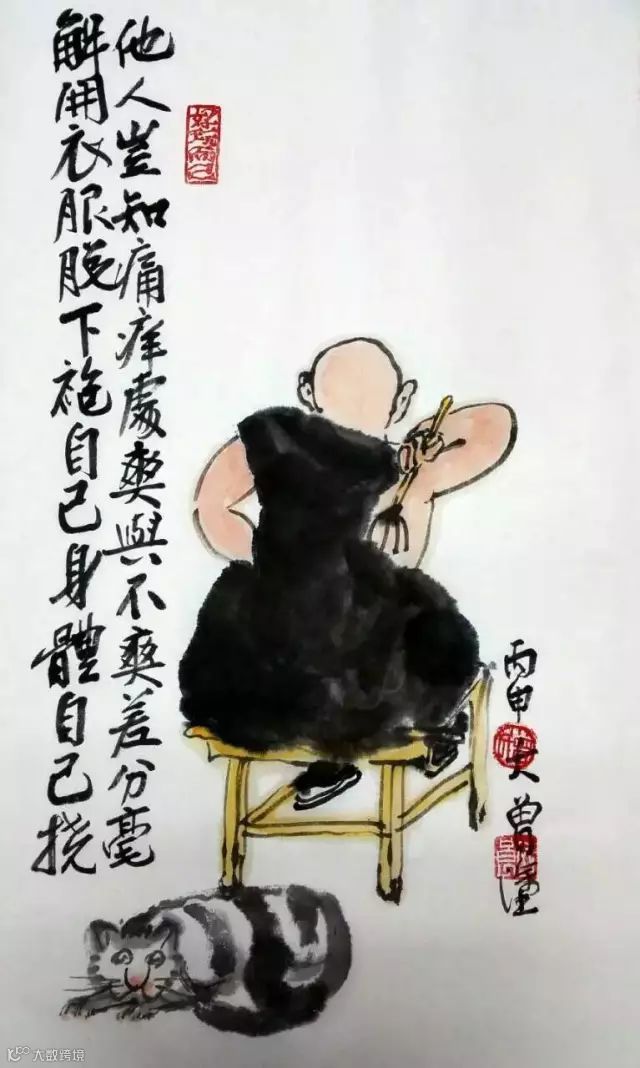 解開衣服脱下袍自己身體自己挠
他人豈知痛痒處爽與不爽差分毫
丙申
大数跨境